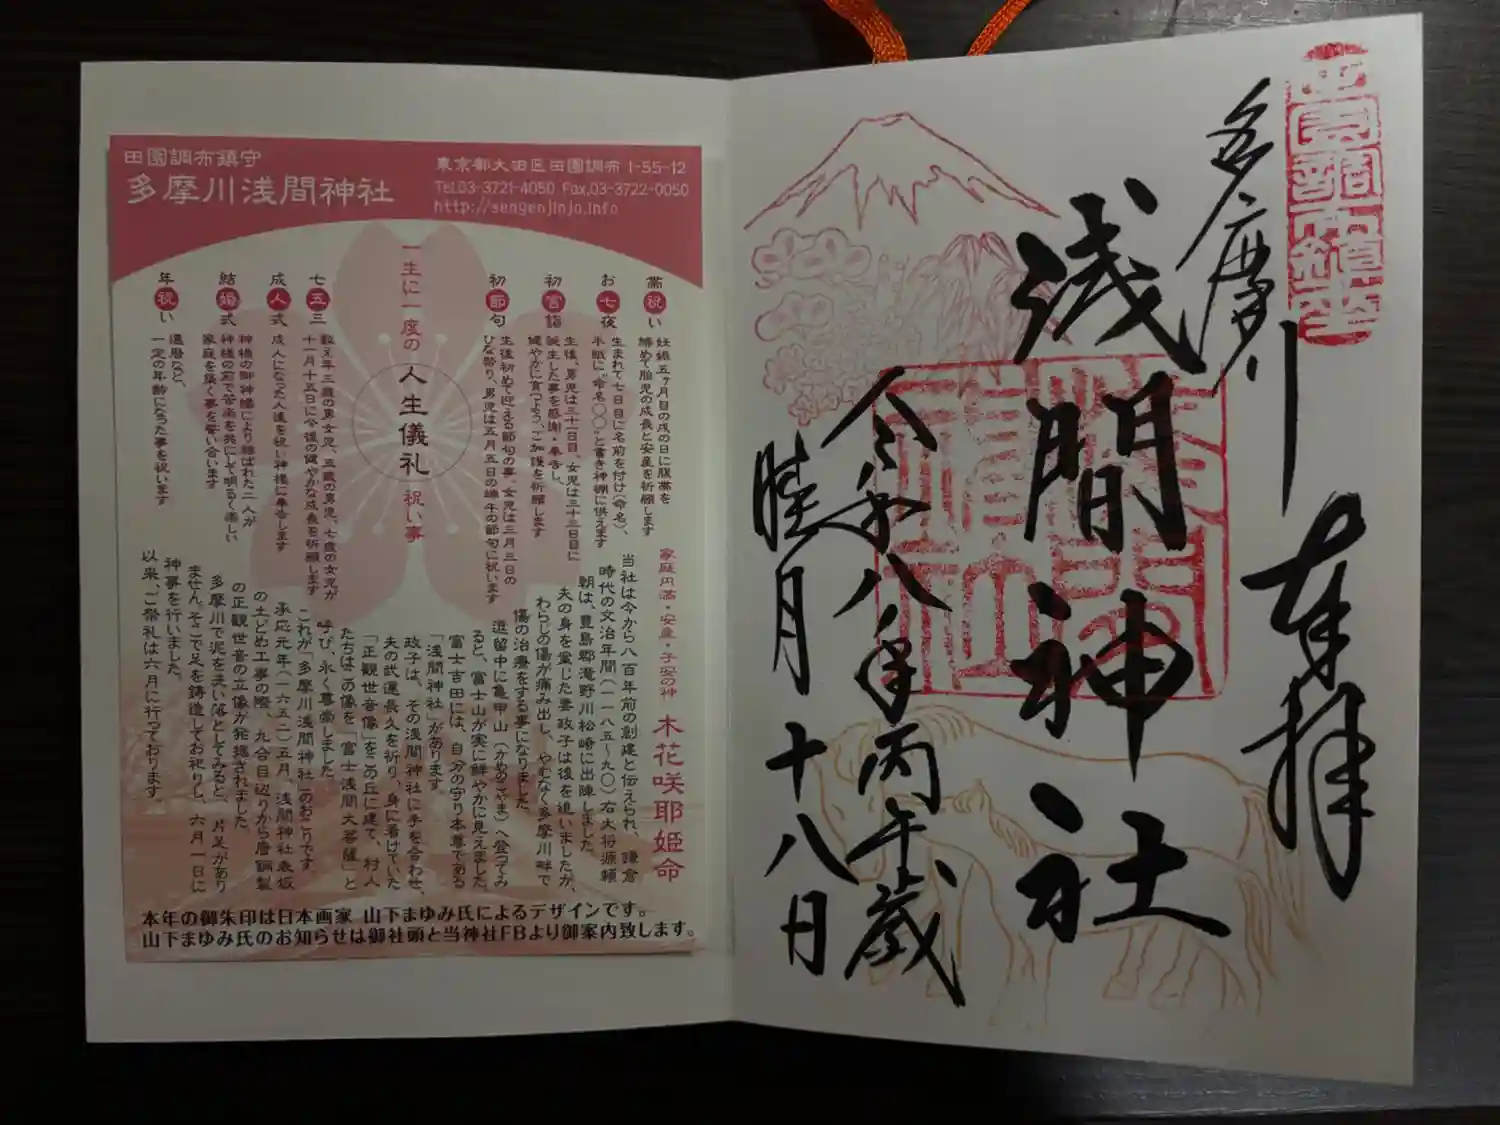 田園調布鎮守
多摩川浅間神社
東京都大田区田園調布 1-55-12
Tel.03-3721-4050 Fax.03-3722-0050
http://sengenjinja.info
一生に一度の 人生儀礼 祝い事
帯祝い
妊娠五ヶ月目の戌の日に腹帯を
締めて胎児の成長と安産を祈願します
お七夜
生まれて七日目に名前を付け(命名)、
半紙に“命名〇〇”と書き神棚に供えます
初宮詣
生後、男児は三十一日目、女児は三十三日目に
誕生した事を感謝・奉告し、
健やかに育つよう、ご加護を祈願します
初節句
生後初めて迎える節句の事。女児は三月三日の
ひな祭り、男児は五月五日の端午の節句に祝います
七五三
数え年三歳の男女児、五歳の男児、七歳の女児が
十一月十五日に今後の健やかな成長を祈願します
成人式
成人になった人達を祝い神様に奉告します
結婚式
神様の御神縁により結ばれた二人が
神様の前で苦楽を共にして明るく楽しい
家庭を築く事を誓い合います
年祝い
還暦など、
一定の年齢になった事を祝います
家庭円満・安産・子安の神 木花咲耶姫命
当社は今から八百年前の創建と伝えられ、鎌倉
時代の文治年間(一一八五〜九〇)右大将源頼
朝は、豊島郡滝野川松崎に出陣しました。
夫の身を案じた妻政子は後を追いましたが、
わらじの傷が痛み出し、やむなく多摩川畔で
傷の治療をする事になりました。
逗留中に亀甲山(かめのこやま)へ登ってみ
ると、富士山が実に鮮やかに見えました。
富士吉田には、自分の守り本尊である
「浅間神社」があります。
政子は、その浅間神社に手を合わせ、
夫の武運長久を祈り、身に着けていた
「正観世音像」をこの丘に建て、村人
たちはこの像を「富士浅間大菩薩」と
呼び、永く尊崇しました。
これが「多摩川浅間神社」のおこりです。
承応元年(一六五二)五月、浅間神社表坂
の土どめ工事の際、九合目辺りから唐銅製
の正観世音の立像が発掘されました。
多摩川で泥を洗い落としてみると、片足があり
ません。そこで足を鋳造してお祀りし、六月一日に
神事を行いました。
以来、ご祭礼は六月に行っております。
本年の御朱印は日本画家 山下まゆみ氏によるデザインです。
山下まゆみ氏のお知らせは御社頭と当神社FBより御案内致します。
田園調布鎮座
奉拝
多摩川
浅間神社
令和八年丙午歳
睦月十八日